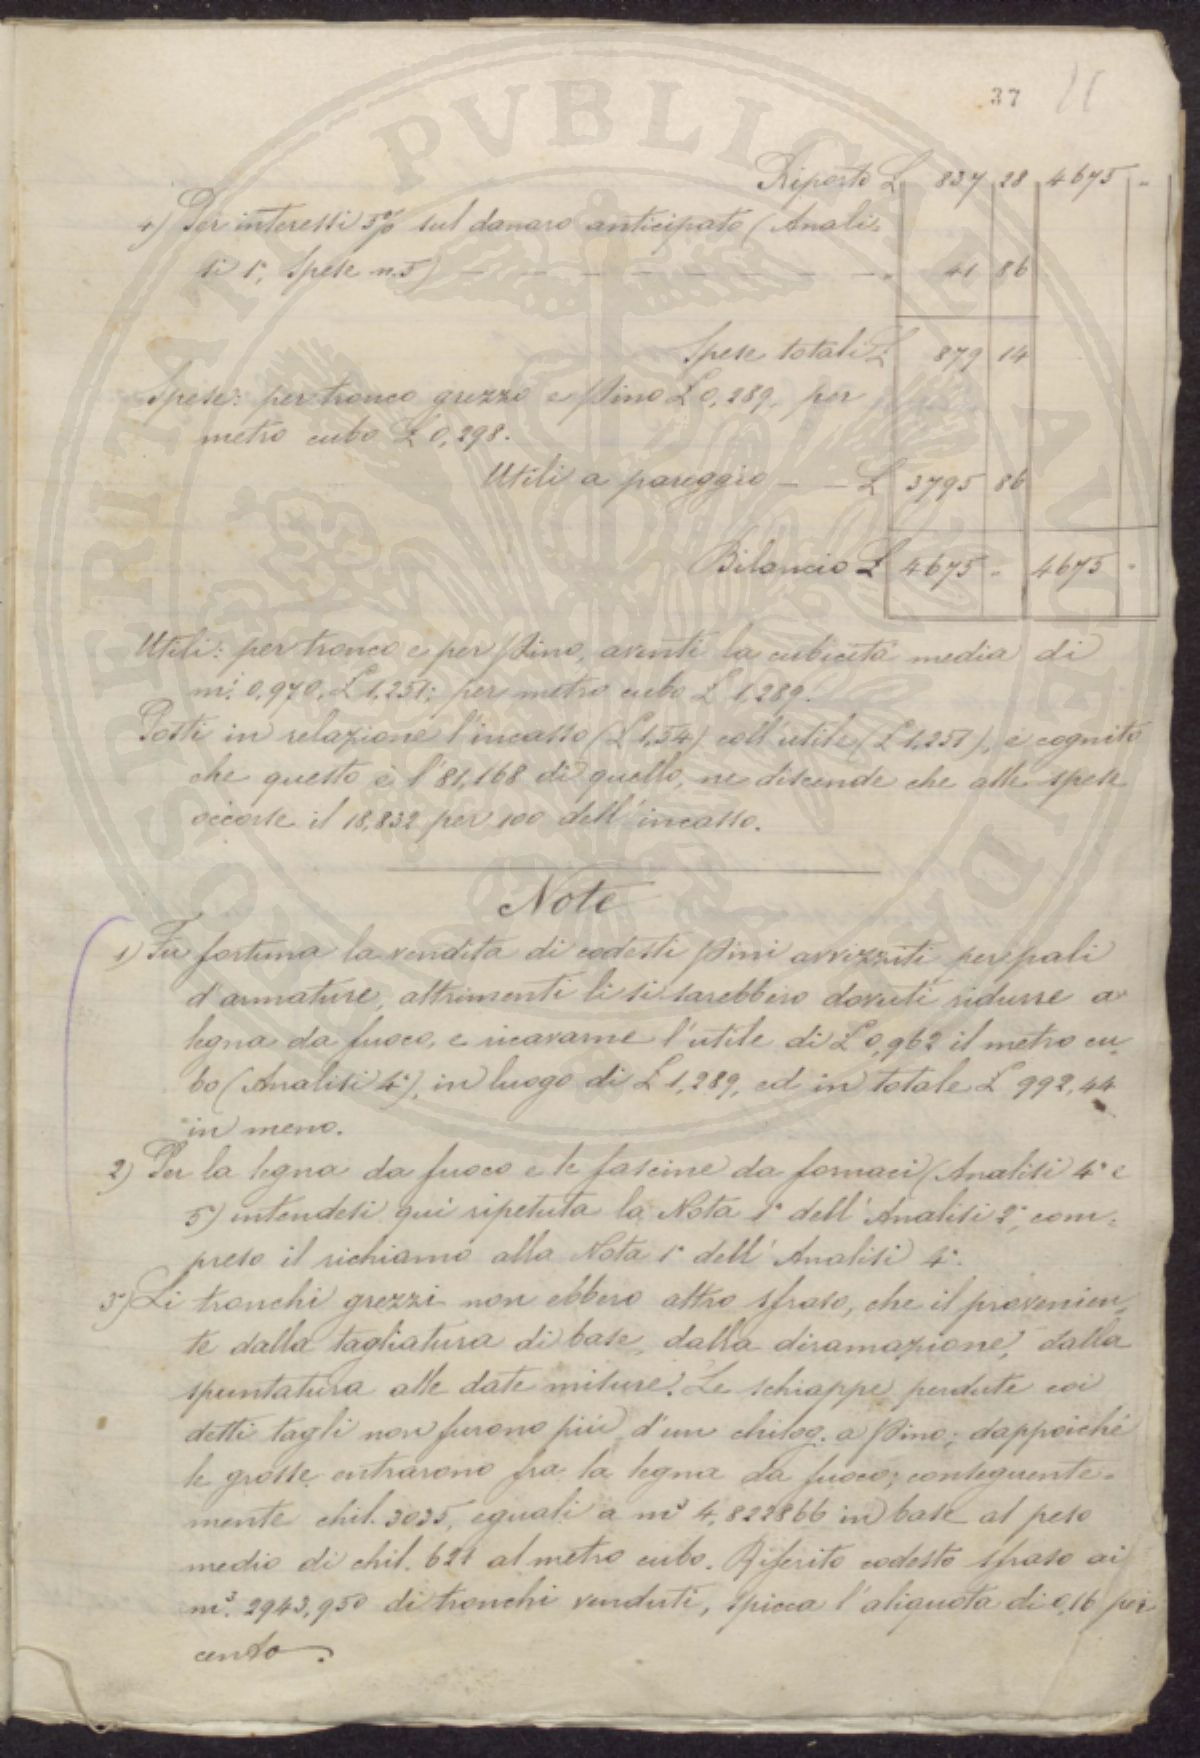 37
Riporto L 837 28 4675 "
4) Per interessi 5% sul danaro anticipato (Anali-
si 1ª, Spese n. 5) — — — — — — — — 41 86
Spese totali L 879 14
Spese: per tronco grezzo e pino L 0,289, per
metro cubo L 0,298.
Utili a pareggio — — L 3795 86
Bilancio L 4675 " 4675 "
Utili: per tronco e per pino, aventi la cubicità media di
m³. 0,970, L 1,251; per metro cubo L 1,289.
Posti in relazione l'incasso (L 1,54) coll'utile (L 1,251), e cognito
che questo è l'81,168 di quello, ne discende che alle spese
occorse il 18,832 per 100 dell'incasso.
Note
1) Fu fortuna la vendita di codesti pini avvizziti per pali
d'armature, altrimenti li si sarebbero dovuti ridurre a
legna da fuoco, e ricavarne l'utile di L 0,962 il metro cu-
bo (Analisi 4ª), in luogo di L 1,289, ed in totale L 992,44
in meno.
2) Per la legna da fuoco e le fascine da fornaci (Analisi 4ª e
5ª) intendesi qui ripetuta la Nota 1ª dell'Analisi 2ª, com-
preso il richiamo alla Nota 1ª dell'Analisi 4ª.
3) Li tronchi grezzi non ebbero altro sfraso, che il provenien-
te dalla tagliatura di base, dalla diramazione, dalla
spuntatura alle date misure. Le schiappe perdute coi
detti tagli non furono più d'un chilog. a pino; dappoichè
le grosse entrarono fra la legna da fuoco; conseguente-
mente chil. 3035, eguali a m³ 4,822866 in base al peso
medio di chil. 621 al metro cubo. Riferito codesto sfraso ai
m³. 2943,950 di tronchi venduti, spicca l'aliquota di 0,16 per
cento.
PVBLICAE